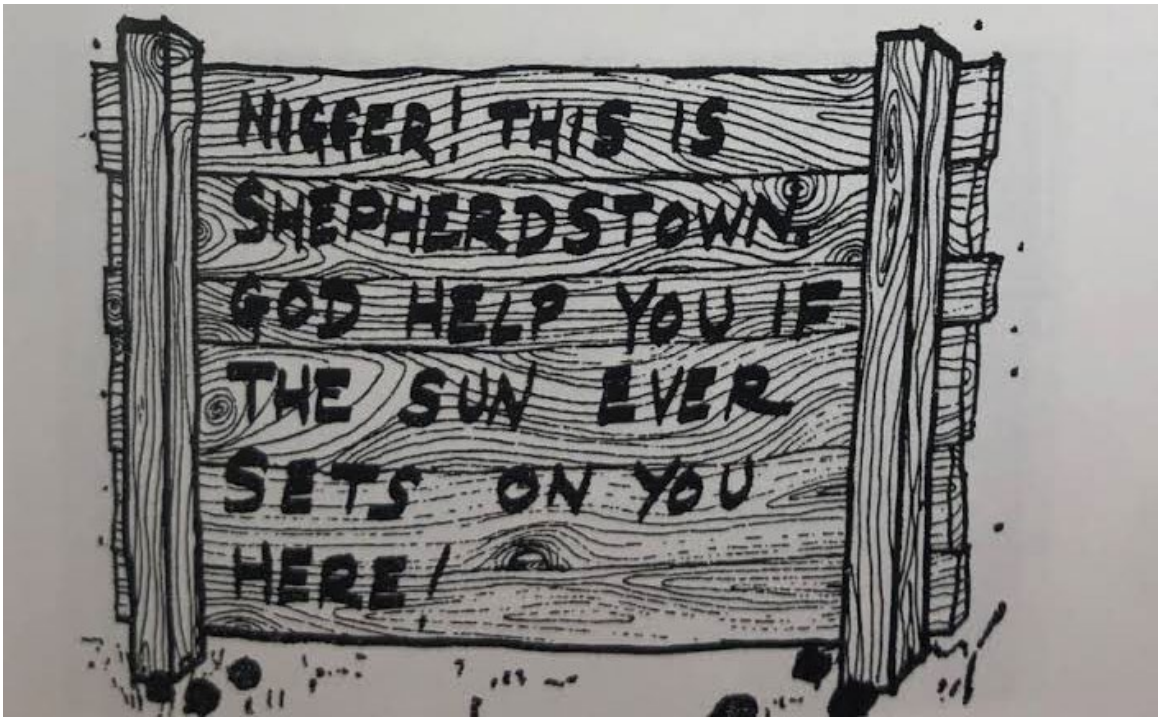 NIGGER! THIS IS
SHEPHERDSTOWN.
GOD HELP YOU IF
THE SUN EVER
SETS ON YOU
HERE!